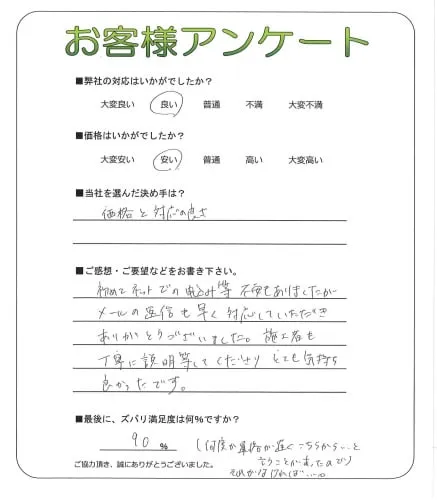 お客様アンケート
■弊社の対応はいかがでしたか？
大変良い 良い 普通 不満 大変不満
■価格はいかがでしたか？
大変安い 安い 普通 高い 大変高い
■当社を選んだ決め手は？
価格と対応の良さ
■ご感想・ご要望などをお書き下さい。
初めてネットでの申込み等 不安もありましたが
メールの返信も早く対応していただき
ありがとうございました。施工者も
丁寧に説明等してくださり とても気持ち
良かったです。
■最後に、ズバリ満足度は何%ですか？
90 %
(何度か 遅く こちらから…と
いうことがあったので)
それがなければ……。
ご協力頂き、誠にありがとうございました。